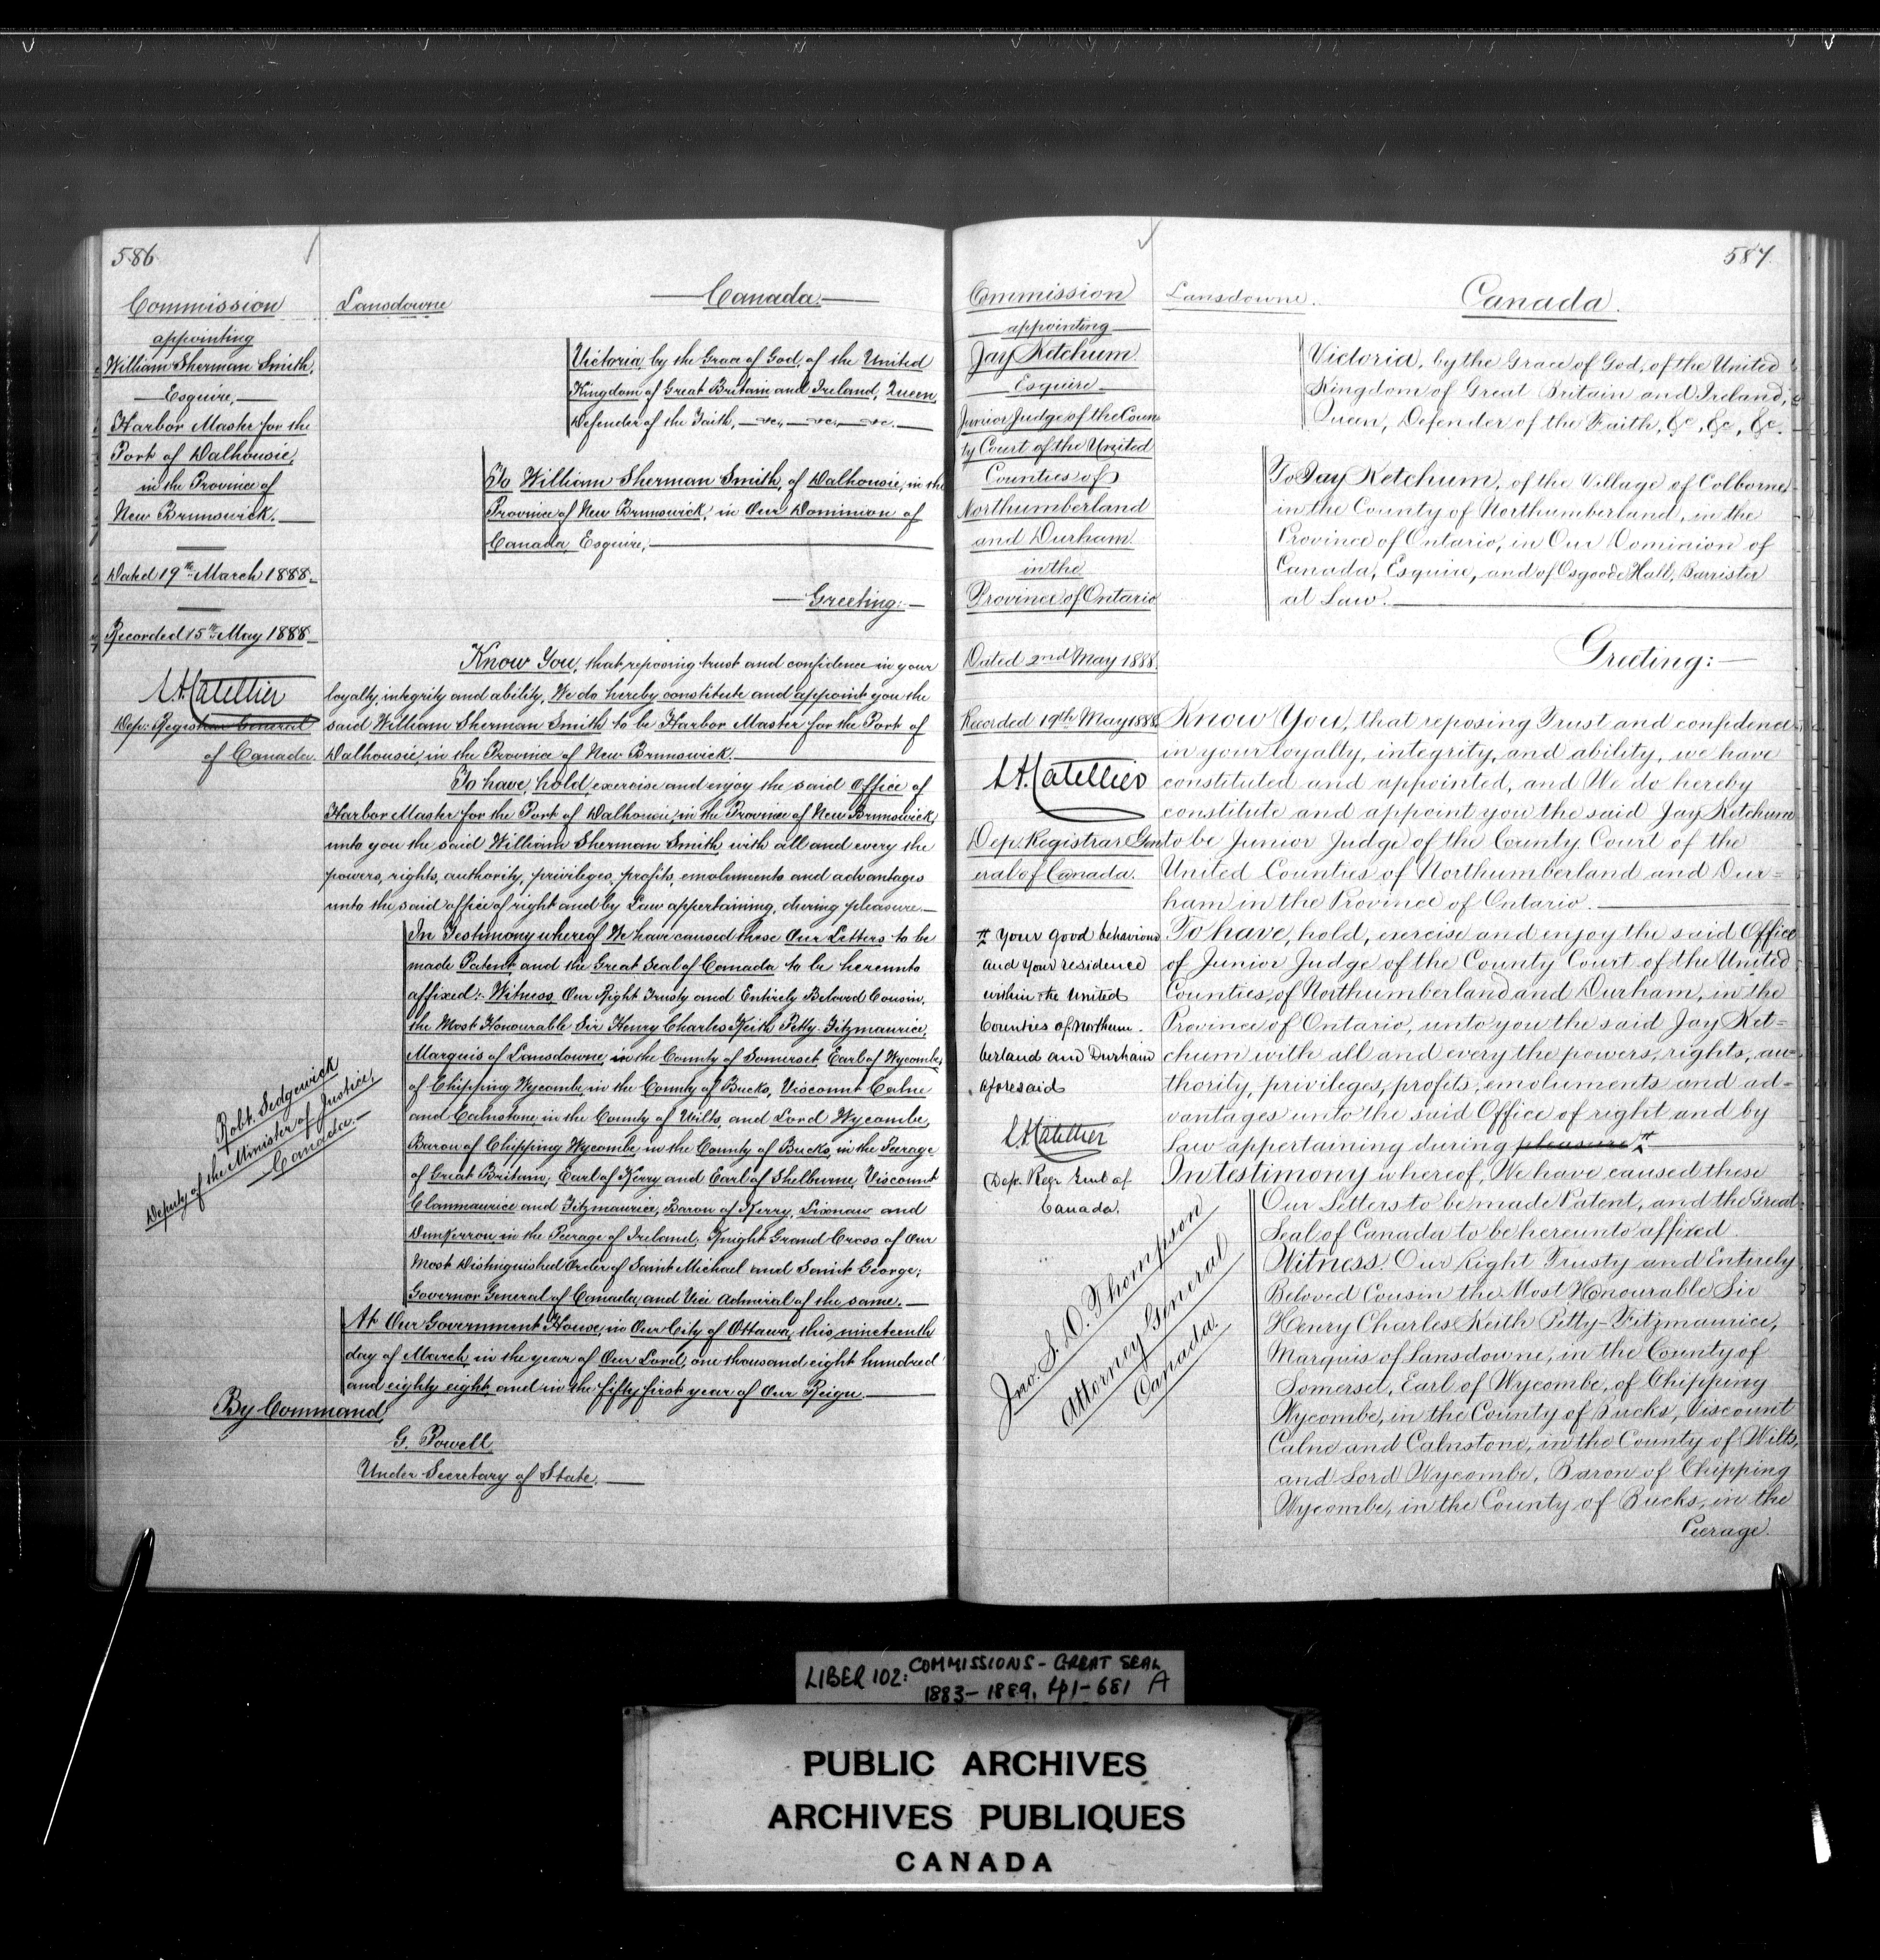 586
Commission
appointing
William Sherman Smith,
Esquire,
Harbor Master for the
Port of Dalhousie,
in the Province of
New Brunswick.
Dated 19th March 1888
Recorded 15th May 1888
L.A. Catellier
Dep: Registrar General
of Canada.
Robt. Sedgewick
Deputy of the Minister of Justice,
Canada.
Lansdowne
Canada.
Victoria, by the Grace of God, of the United
Kingdom of Great Britain and Ireland, Queen,
Defender of the Faith, &c., &c., &c.
To William Sherman Smith, of Dalhousie, in the
Province of New Brunswick, in Our Dominion of
Canada Esquire,
Greeting:
Know You, that reposing trust and confidence in your
loyalty, integrity and ability, We do hereby constitute and appoint you the
said William Sherman Smith to be Harbor Master for the Port of
Dalhousie, in the Province of New Brunswick.
To have, hold, exercise and enjoy the said Office of
Harbor Master for the Port of Dalhousie, in the Province of New Brunswick,
unto you the said William Sherman Smith with all and every the
powers, rights, authority, privileges, profits, emoluments and advantages
unto the said office of right and by Law appertaining, during pleasure.
In Testimony whereof We have caused these Our Letters to be
made Patent, and the Great Seal of Canada to be hereunto
affixed: Witness Our Right Trusty and Entirely Beloved Cousin,
the Most Honourable Sir Henry Charles Keith Petty-Fitzmaurice,
Marquis of Lansdowne, in the County of Somerset, Earl of Wycombe,
of Chipping Wycombe, in the County of Bucks, Viscount Calne
and Calnstone, in the County of Wilts, and Lord Wycombe,
Baron of Chipping Wycombe in the County of Bucks, in the Peerage
of Great Britain; Earl of Kerry and Earl of Shelburne, Viscount
Clanmaurice and Fitzmaurice, Baron of Kerry, Lixnaw and
Dunkerron in the Peerage of Ireland; Knight Grand Cross of Our
Most Distinguished Order of Saint Michael and Saint George;
Governor General of Canada, and Vice Admiral of the same.
At Our Government House, in Our City of Ottawa, this nineteenth
day of March, in the year of Our Lord, one thousand eight hundred
and eighty eight, and in the fifty first year of Our Reign.
By Command,
G. Powell
Under Secretary of State.
587.
Commission
appointing
Jay Ketchum
Esquire
Junior Judge of the Coun
ty Court of the United
Counties of
Northumberland
and Durham
in the
Province of Ontario
Dated 2nd May 1888.
Recorded 19th May 1888
L.A. Catellier
Dep. Registrar Gen
eral of Canada.
# your good behaviour
and your residence
within the United
Counties of Northum-
berland and Durham
aforesaid
L.A. Catellier
Dep. Regr. Genl. of
Canada.
Jno. S. D. Thompson
Attorney General
Canada.
Lansdowne.
Canada.
Victoria, by the Grace of God, of the United
Kingdom of Great Britain and Ireland,
Queen, Defender of the Faith, &c, &c, &c.
To Jay Ketchum, of the Village of Colborne,
in the County of Northumberland, in the
Province of Ontario, in Our Dominion of
Canada, Esquire, and of Osgoode Hall, Barrister
at Law.
Greeting:
Know You, that reposing Trust and confidence
in your loyalty, integrity, and ability, we have
constituted and appointed, and We do hereby
constitute and appoint you the said Jay Ketchum
to be Junior Judge of the County Court of the
United Counties of Northumberland and Dur=
ham in the Province of Ontario.
To have, hold, exercise and enjoy the said Office
of Junior Judge of the County Court of the United
Counties, of Northumberland and Durham, in the
Province of Ontario, unto you the said Jay Ket=
chum with all and every the powers, rights, au=
thority, privileges, profits, emoluments and ad=
vantages unto the said Office of right and by
Law appertaining during pleasure #
In testimony whereof, We have caused these
Our Letters to be made Patent, and the Great
Seal of Canada to be hereunto affixed.
Witness. Our Right Trusty and Entirely
Beloved Cousin the Most Honourable Sir
Henry Charles Keith Petty-Fitzmaurice,
Marquis of Lansdowne, in the County of
Somerset, Earl of Wycombe, of Chipping
Wycombe, in the County of Bucks, Viscount
Calne and Calnstone, in the County of Wilts,
and Lord Wycombe, Baron of Chipping
Wycombe, in the County of Bucks, in the
Peerage.
LIBER 102: COMMISSIONS - GREAT SEAL
1883-1889, pp1-681 A
PUBLIC ARCHIVES
ARCHIVES PUBLIQUES
CANADA